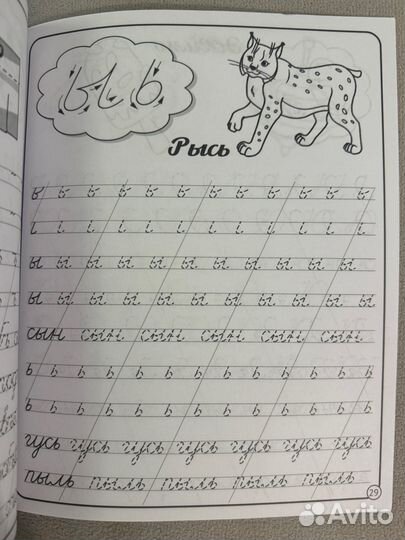 ы ь
Рысь
ь ь ь ь ь ь ь ь ь ь ь ь
ı ı ı ı ı ı ı ı ı ı ı ı
ы ы ы ы ы ы ы ы ы ы ы
ы ы ы ы ы ы ы ы ы ы ы
сын сын сын сын сын сын
ь ь ь ь ь ь ь ь ь ь ь ь ь
ь ь ь ь ь ь ь ь ь ь ь ь
гусь гусь гусь гусь гусь гусь гусь
пыль пыль пыль пыль пыль
29
Avito